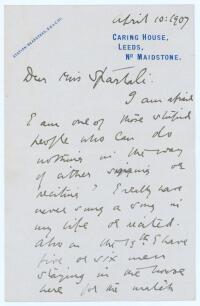 April 10: 1907
STATION BEARSTED. S.E.& C.R.
CARING HOUSE,
LEEDS,
Nr MAIDSTONE.
Dear Miss Spartali:
I am afraid
I am one of those stupid
people who can do
nothing in the way
of either singing or
reciting! I really have
never sung a song in
my life or recited.
Also on the 13th I have
five or six men
staying in the house
here for the match